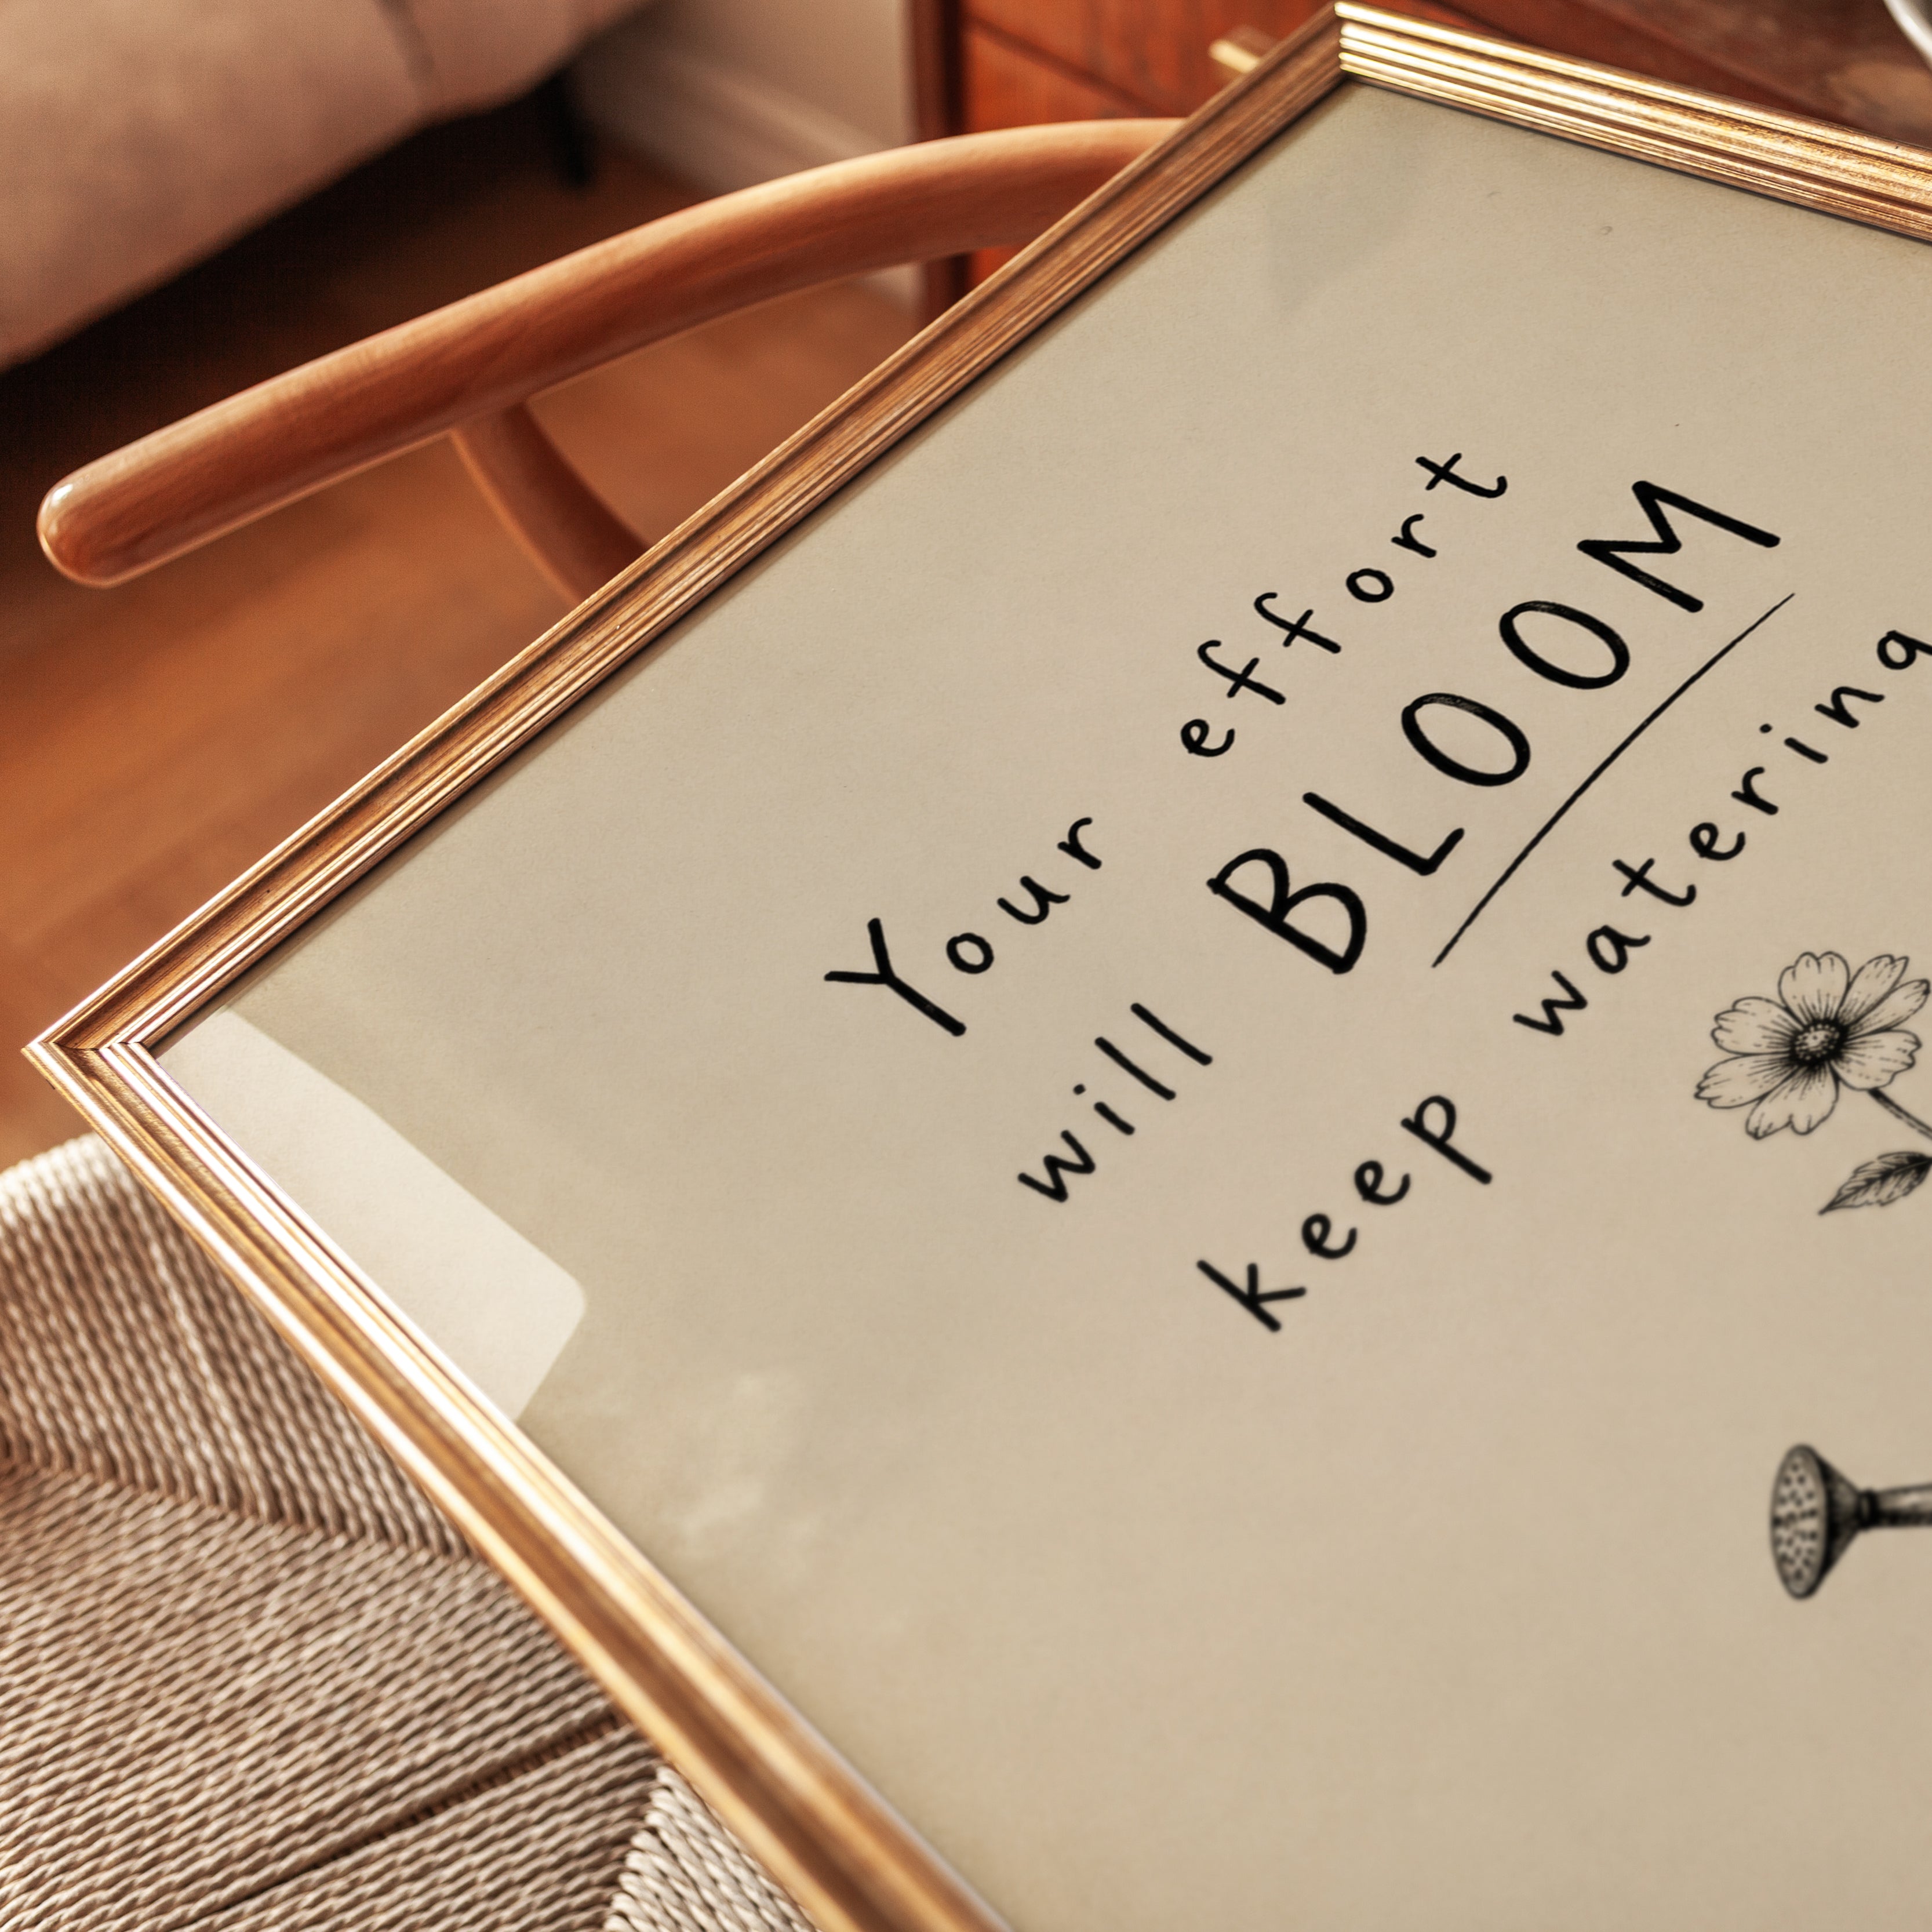 Your effort
will BLOOM
keep watering